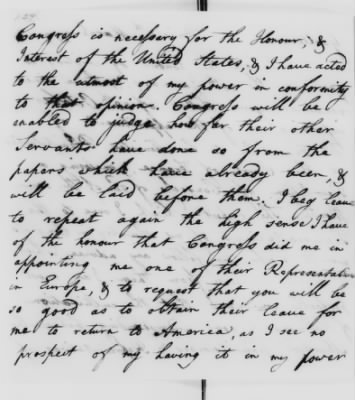 Congress is necessary for the Honour, &
Interest of the United States, & I have acted
to the utmost of my power in conformity
to that opinion. Congress will be
enabled to judge how far their other
Servants have done so from the
papers which have already been, &
will be laid before them. I beg leave
to repeat again the high sense I have
of the honour that Congress did me in
appointing me one of their Representatives
in Europe, & to request that you will be
so good as to obtain their leave for
me to return to America, as I see no
prospect of my having it in my power